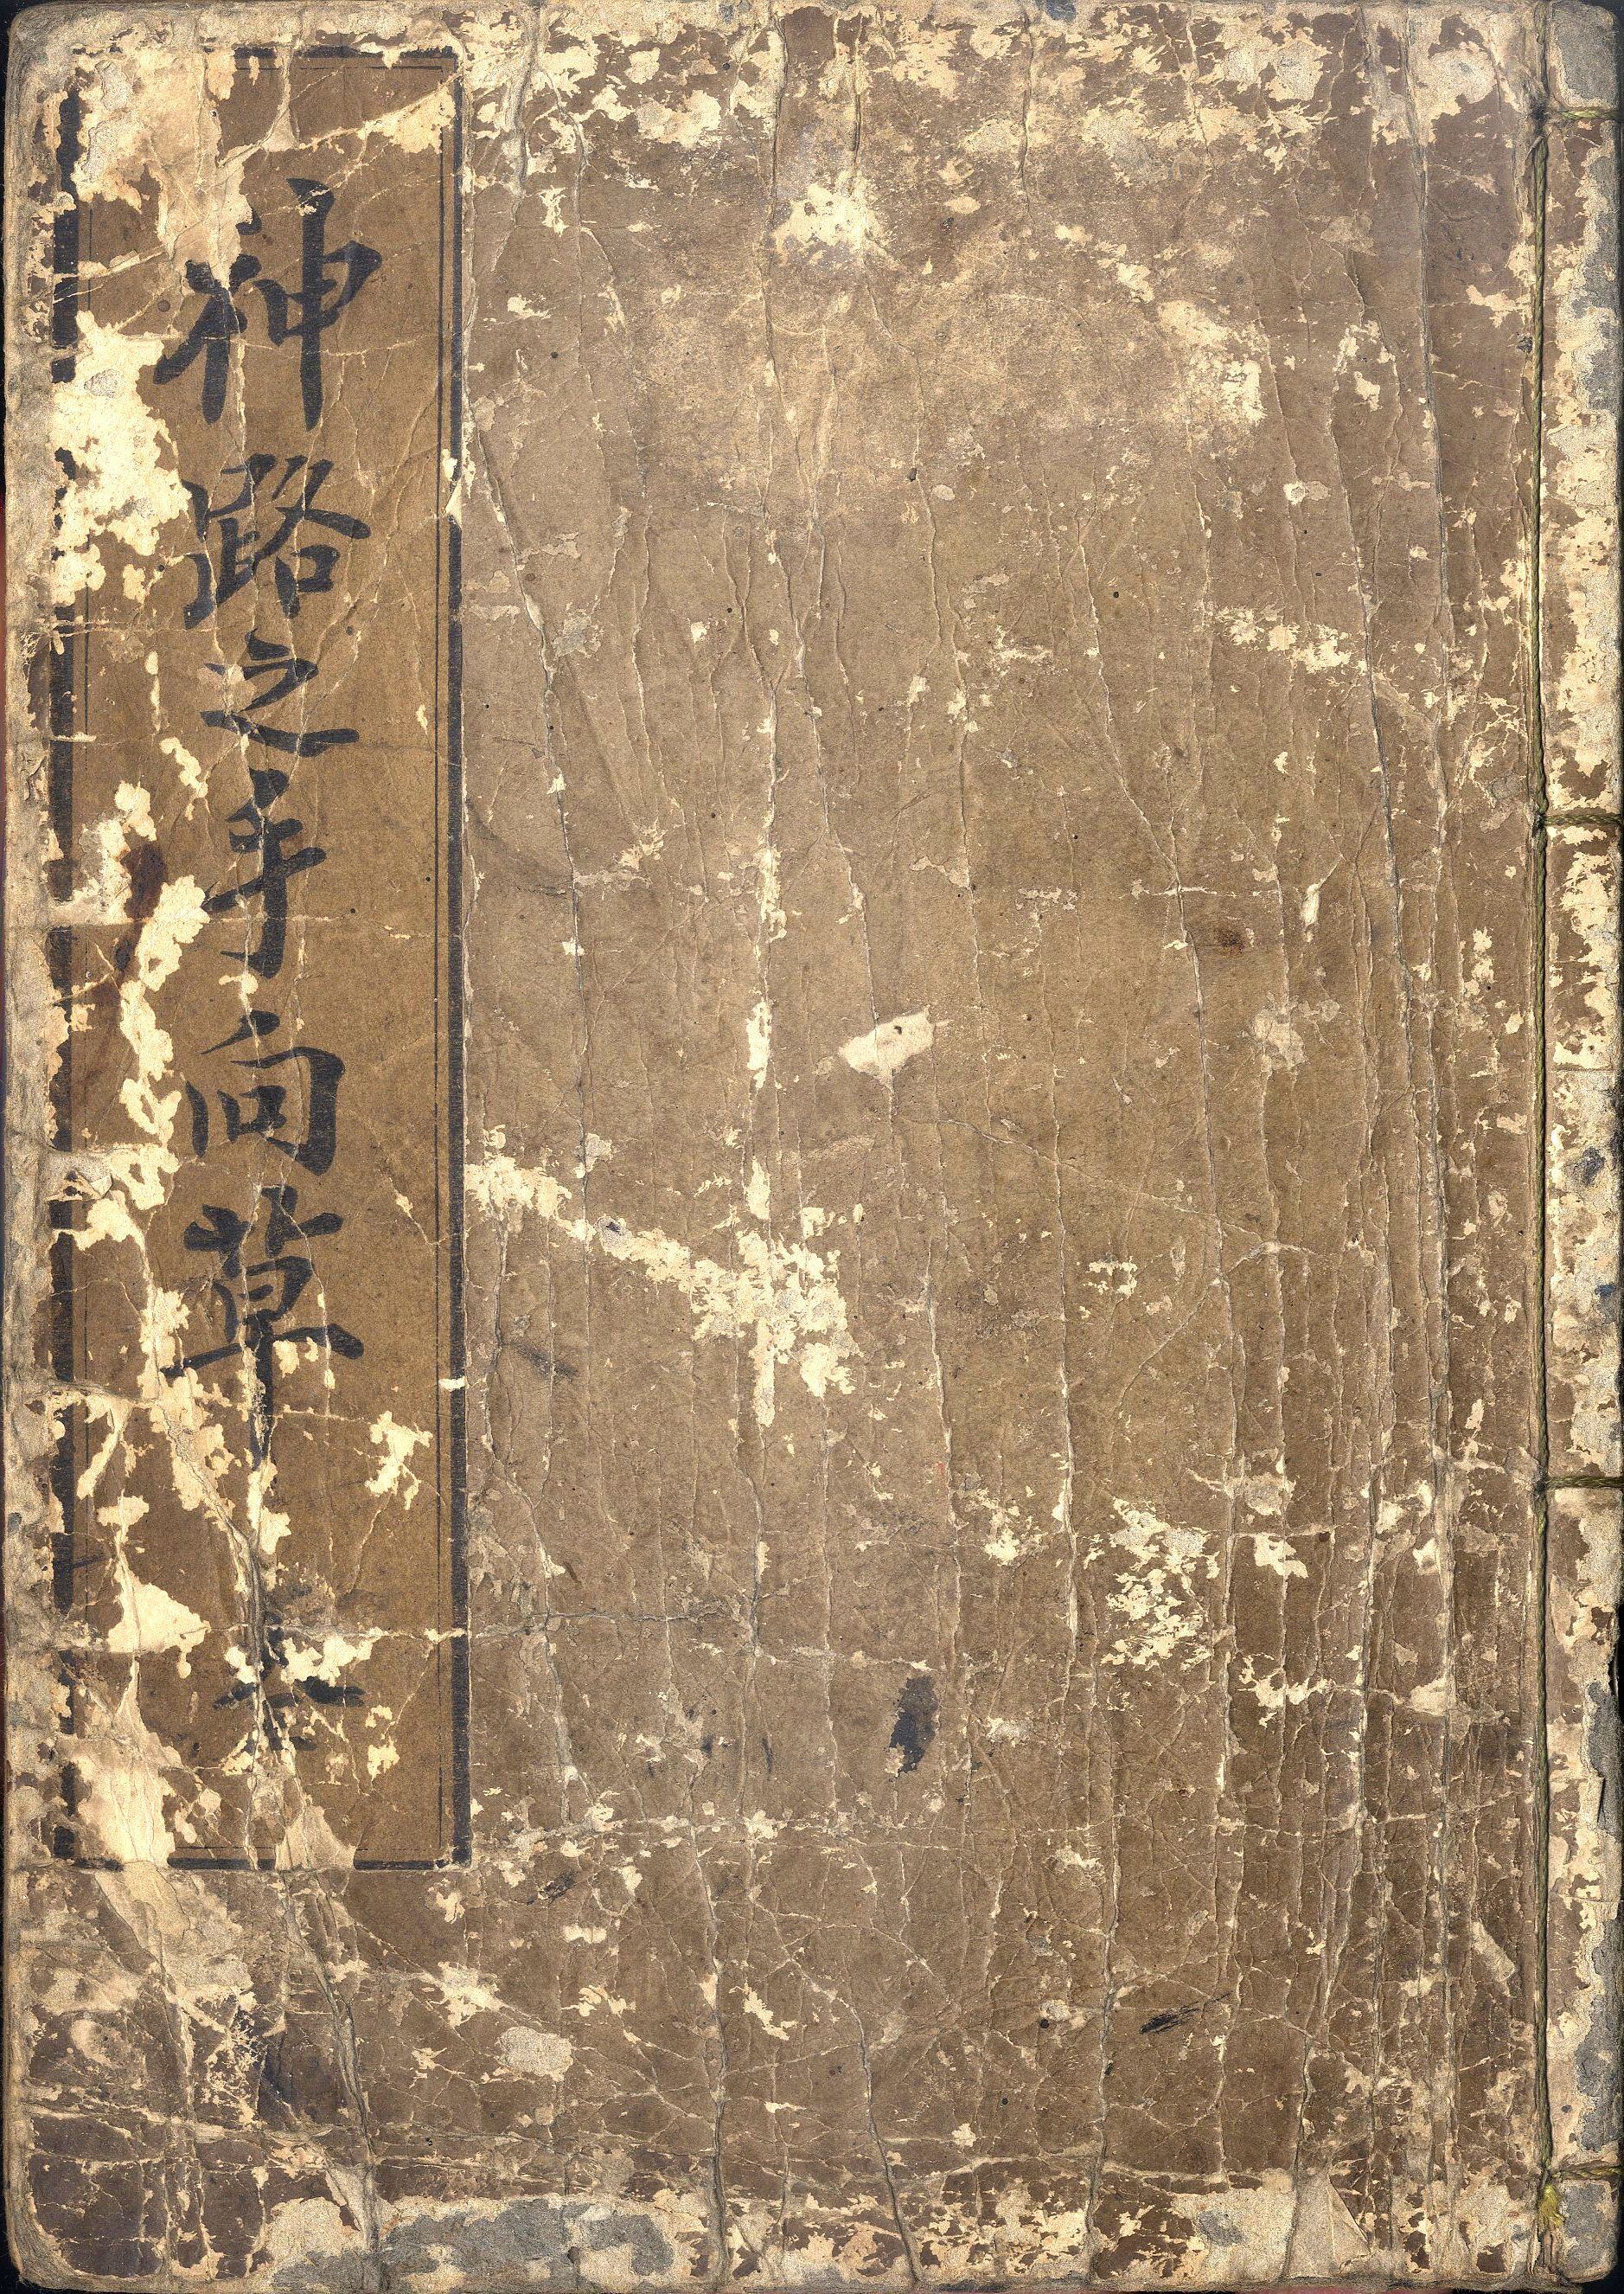 神路之手向草